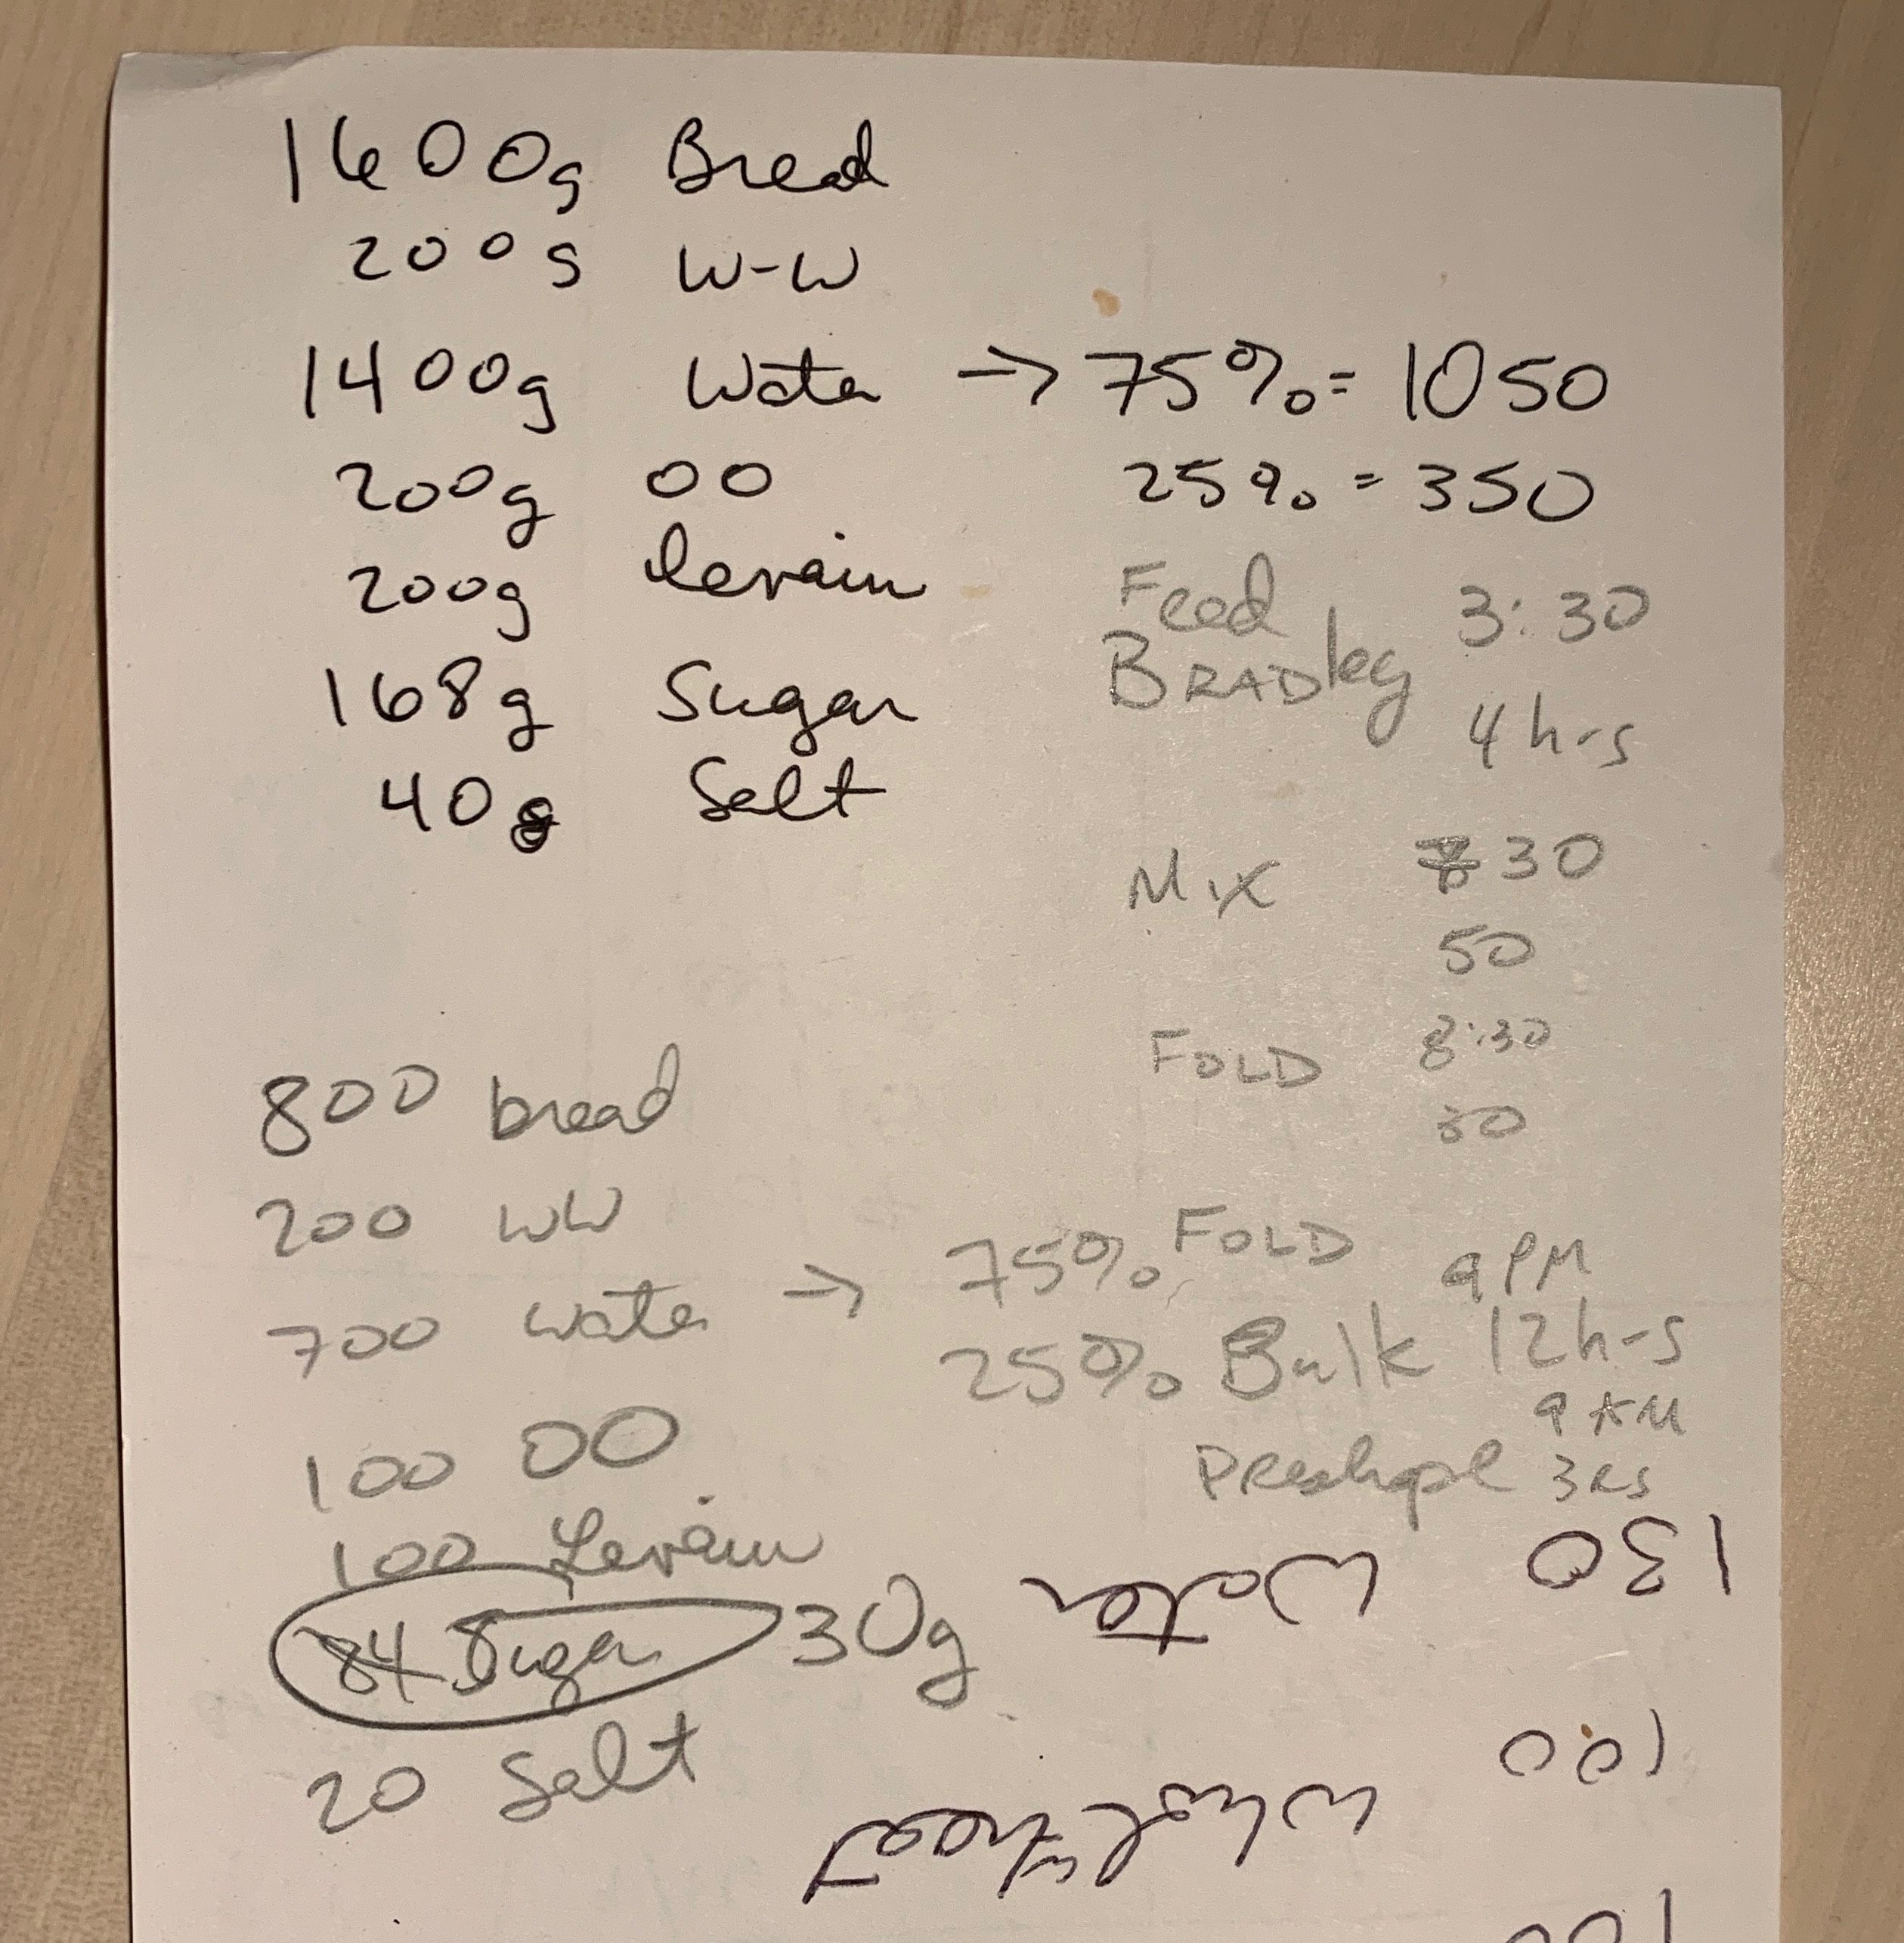 1600g Bread
200g W-W
1400g Water → 75% = 1050
25% = 350
200g OO
200g levain
168g Sugar
40g Salt
Feed 3:30
BRADley
4 hrs
Mix 30
50
FOLD 8:30
30
FOLD 9 PM
Bulk 12 hrs
9 AM
Preshape
800 bread
200 WW
700 water → 75%
25%
100 OO
100 Levain
84 Sugar 30g
20 Salt
130 Water
100 Whole Wheat
100